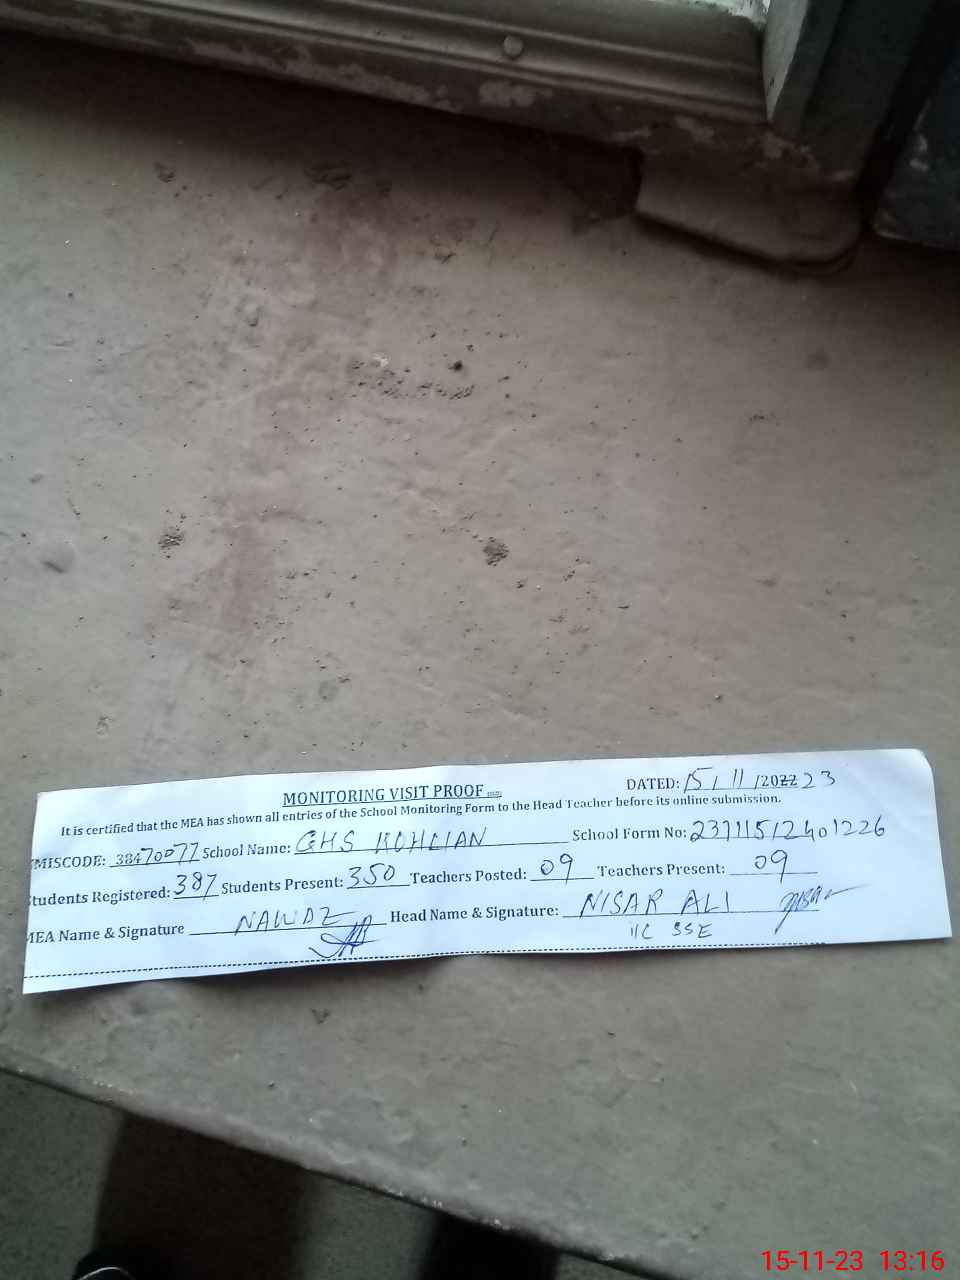 MONITORING VISIT PROOF
DATED: 15/11/2022 23
It is certified that the MEA has shown all entries of the School Monitoring Form to the Head Teacher before its online submission.
MISCODE: 38470077 School Name: GHS KOHLIAN School Form No: 23111512401226
tudents Registered: 387 Students Present: 350 Teachers Posted: 09 Teachers Present: 09
MEA Name & Signature NAWAZ Head Name & Signature: NISAR ALI
I/C SSE
15-11-23 13:16